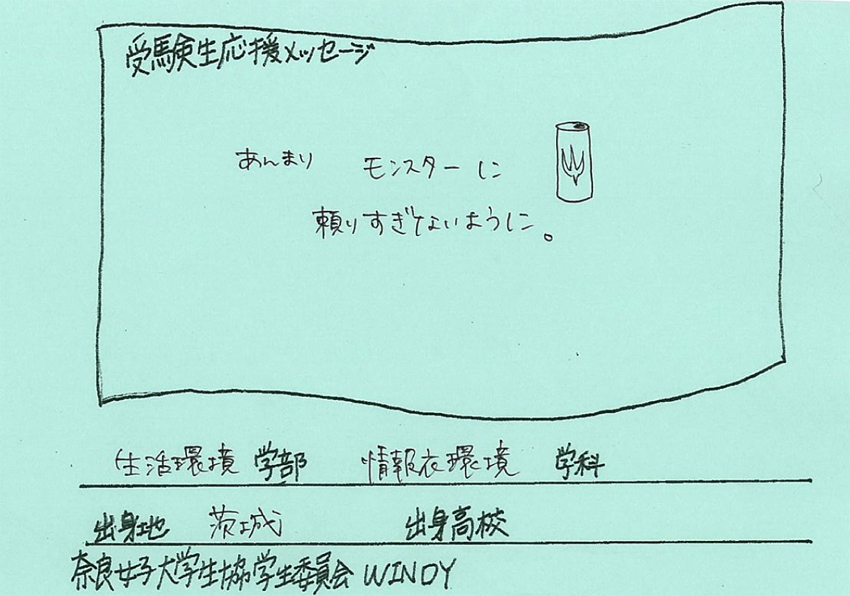 受験生応援メッセージ
あんまり モンスターに
頼りすぎないように。
生活環境 学部 情報衣環境 学科
出身地 茨城 出身高校
奈良女子大学生協学生委員会 WINDY